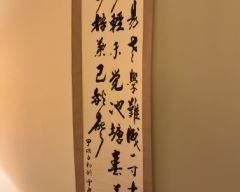 易老學難成一寸
輕未覺池塘春草
梧葉已秋聲